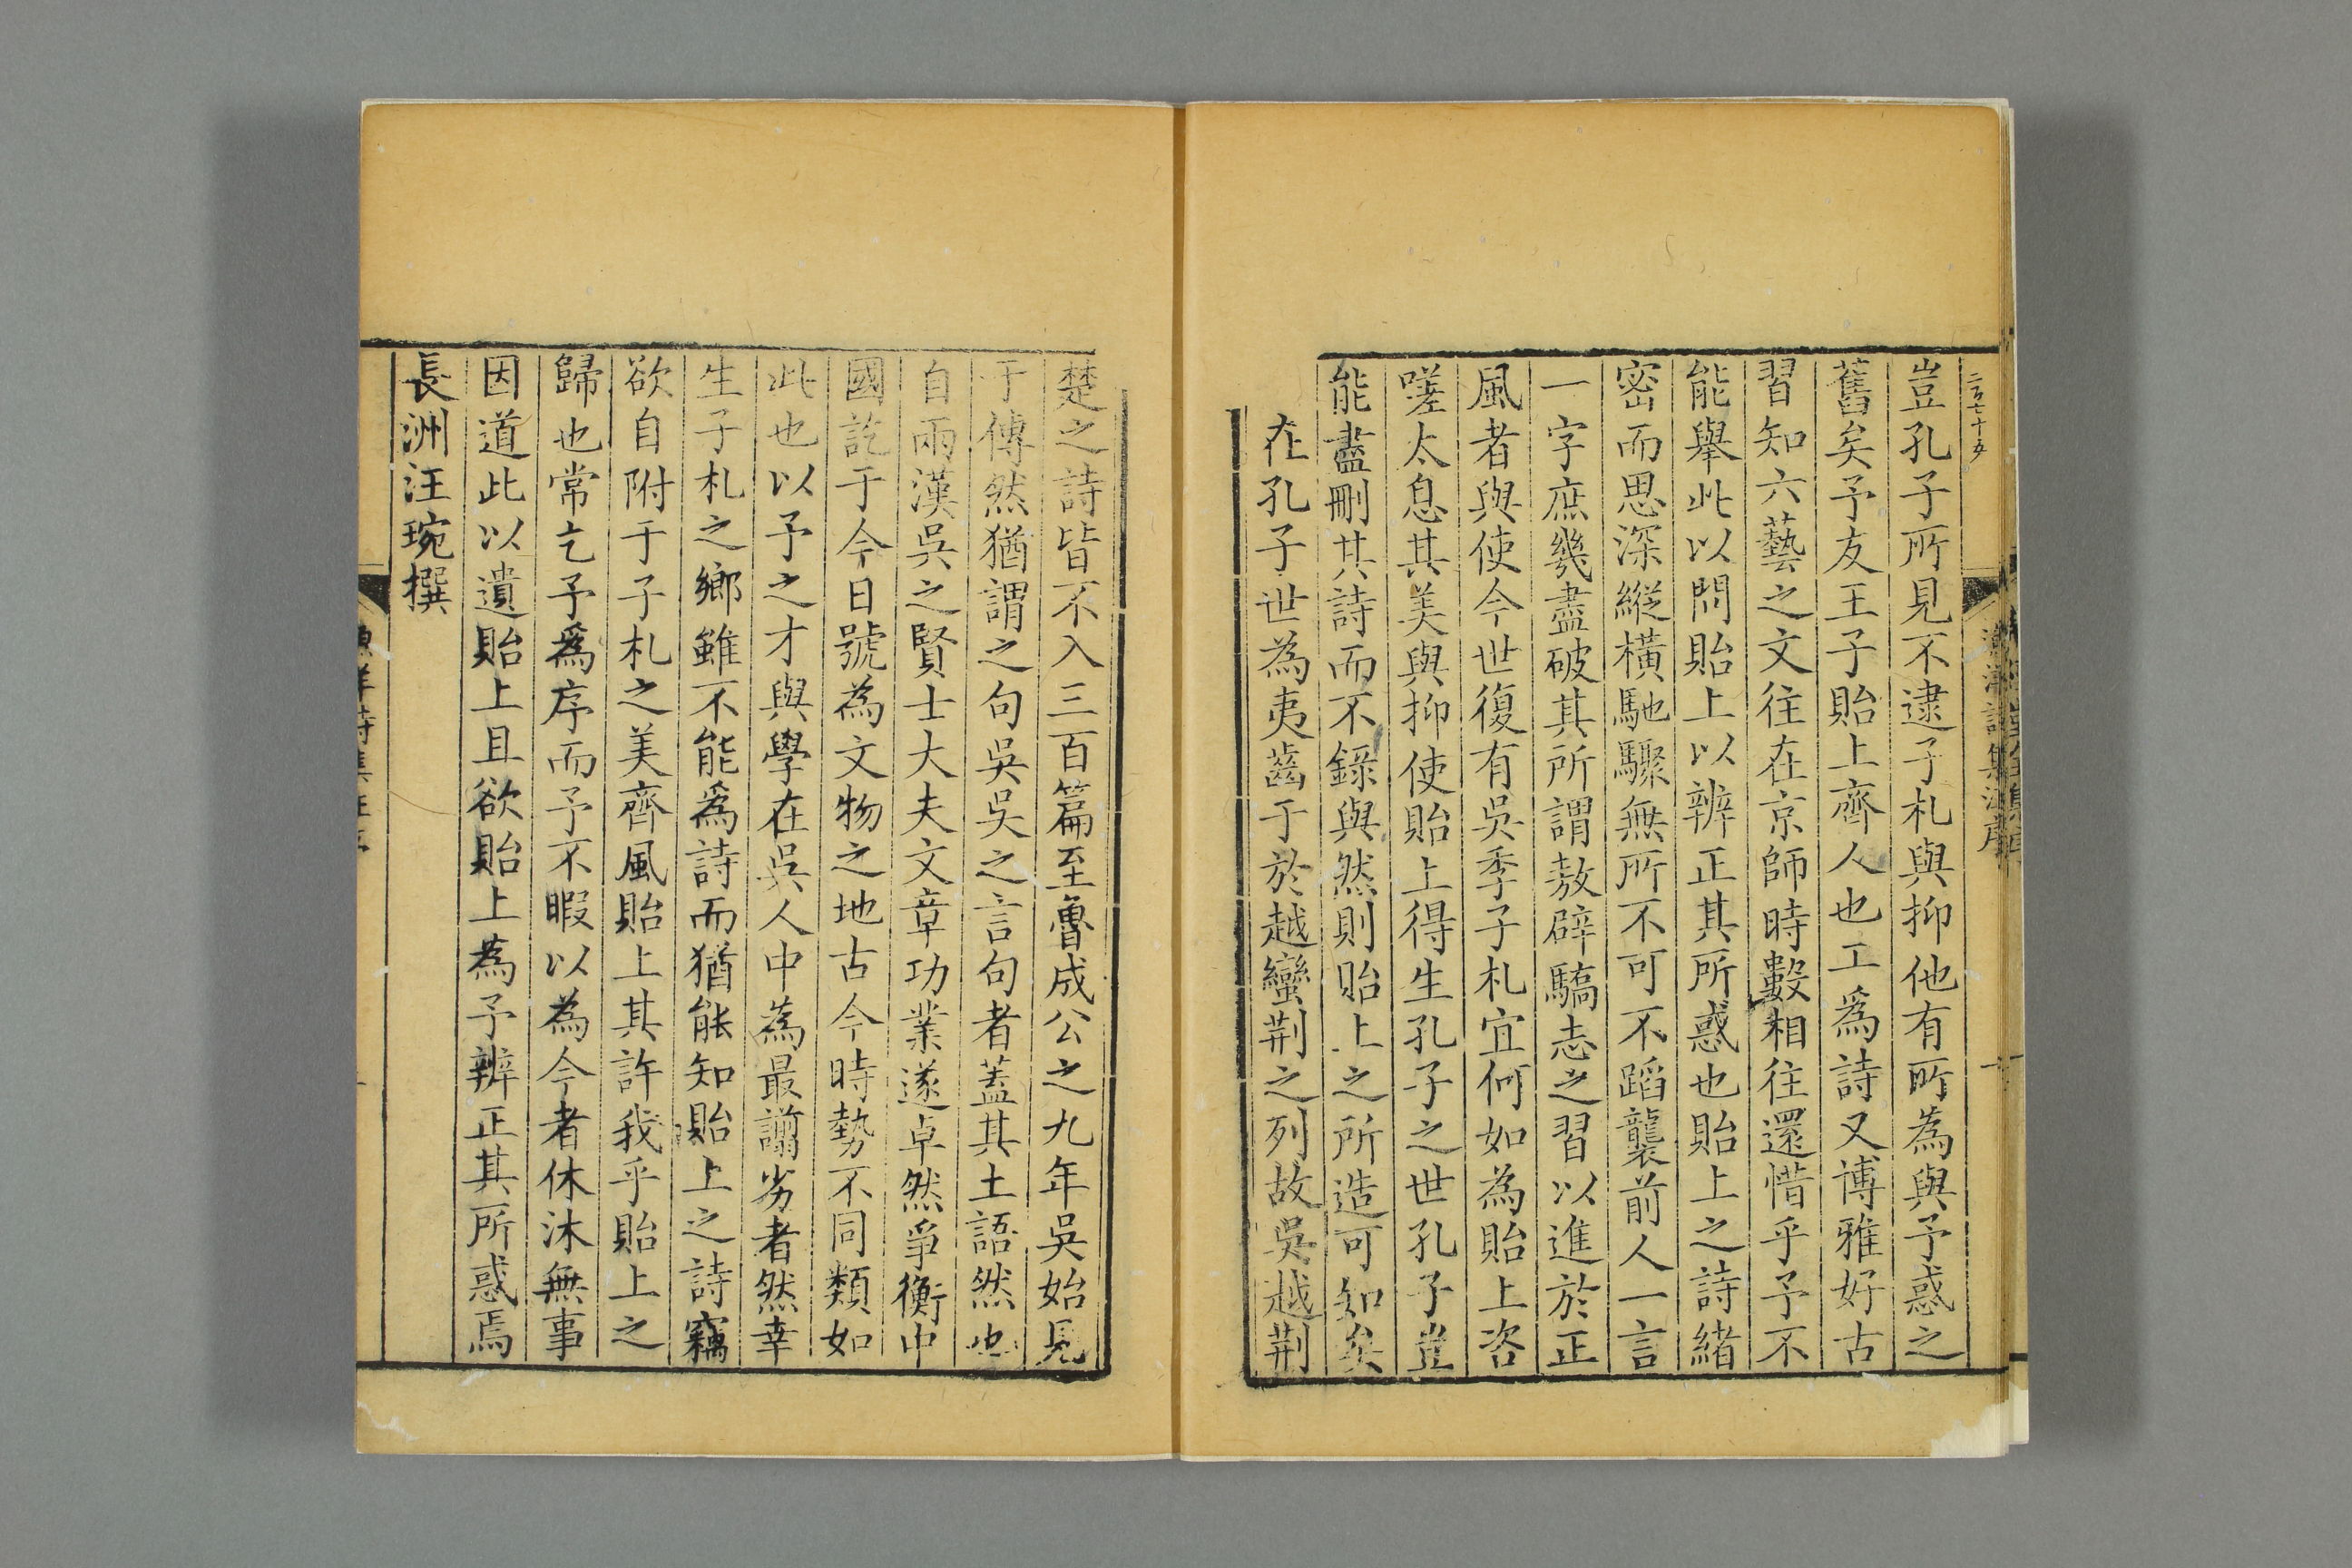 二百七十五
豈孔子所見不逮子札與抑他有所為與予惑之
舊矣予友王子貽上齊人也工爲詩又博雅好古
習知六藝之文往在京師時數相往還惜乎予不
能舉此以問貽上以辨正其所惑也貽上之詩緒
密而思深縱橫馳驟無所不可不蹈襲前人一言
一字庶幾盡破其所謂敖辟驕志之習以進於正
風者與使今世復有吳季子札宜何如為貽上咨
嗟太息其美與抑使貽上得生孔子之世孔子豈
能盡刪其詩而不錄與然則貽上之所造可知矣
在孔子世為夷蔿于於越蠻荆之列故吳越荆
楚之詩皆不入三百篇至魯成公之九年吳始見
于傳然猶謂之句吳吳之言句者蓋其土語然也
自兩漢吳之賢士大夫文章功業遂卓然爭衡中
國訖于今日號為文物之地古今時勢不同類如
此也以予之才與學在吳人中為最譾劣者然幸
生子札之鄉雖不能爲詩而猶能知貽上之詩竊
欲自附于子札之美齊風貽上其許我乎貽上之
歸也常乞予爲序而予不暇以為今者休沐無事
因道此以遺貽上且欲貽上為予辨正其所惑焉
長洲汪琬撰